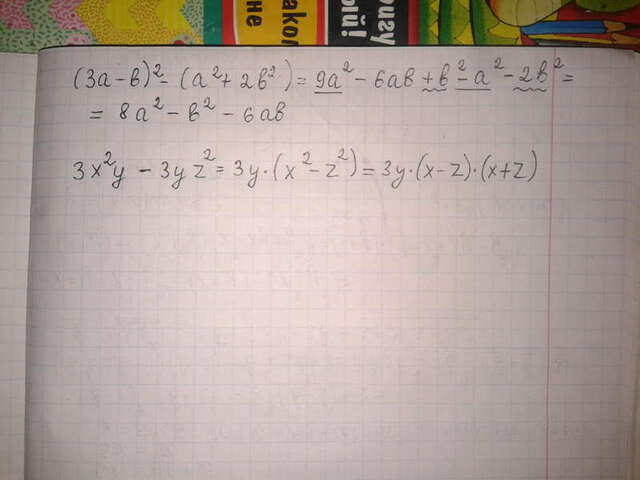 не
акол
ый!
(3a-b)² - (a² + 2b²) = 9a² - 6ab + b² - a² - 2b² =
= 8a² - b² - 6ab
3x²y - 3yz² = 3y·(x² - z²) = 3y·(x-z)·(x+z)